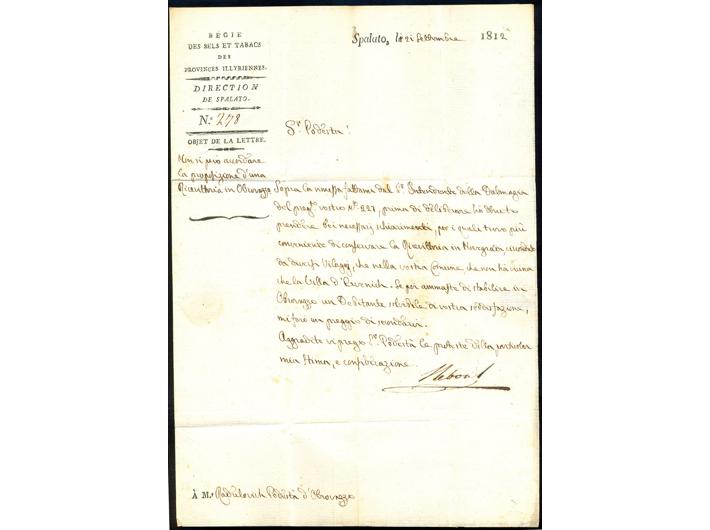 RÉGIE
DES SELS ET TABACS
DES
PROVINCES ILLYRIENNES.
DIRECTION
DE SPALATO.
N.º 278
OBJET DE LA LETTRE.
Non si può accordare
la proposizione d'una
Ricevittoria in Obrovazzo
Spalato, le 21 Settembre 1812
S.r Podestà!
Sopra la rimessa fattami dal S.r Intendente della Dalmazia
del preg.o vostro N.o 227, prima di deliberare ho dovuto
prendere dei necessarj schiarimenti, per i quali trovo più
conveniente di conservare la Ricevittoria in
da diversi Villaggj, che nella vostra Comune, che non ha vicina
che la Villa d' Se poi amaste di stabilire in
Obrovazzo un Debitante solvibile di vostra soddisfazione,
mi farò un preggio di secondarvi.
Aggradite vi prego S.r Podestà le proteste della particolar
mia stima, e considerazione.
Reboul
À M.r Radulovich Podestà d'Obrovazzo